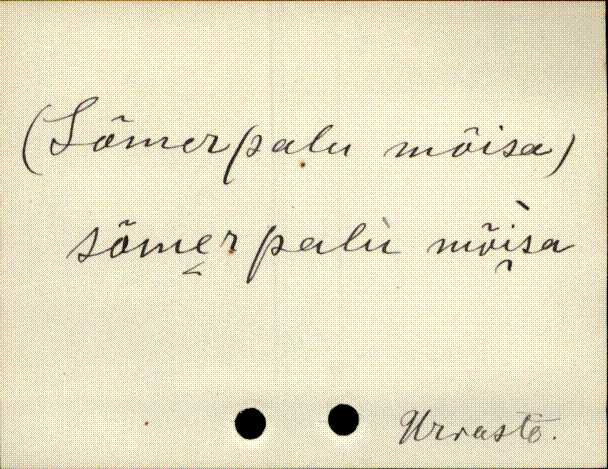 (Sõmerpalu mõisa)
sõme̬r palù mõì̭sa
Urvaste.